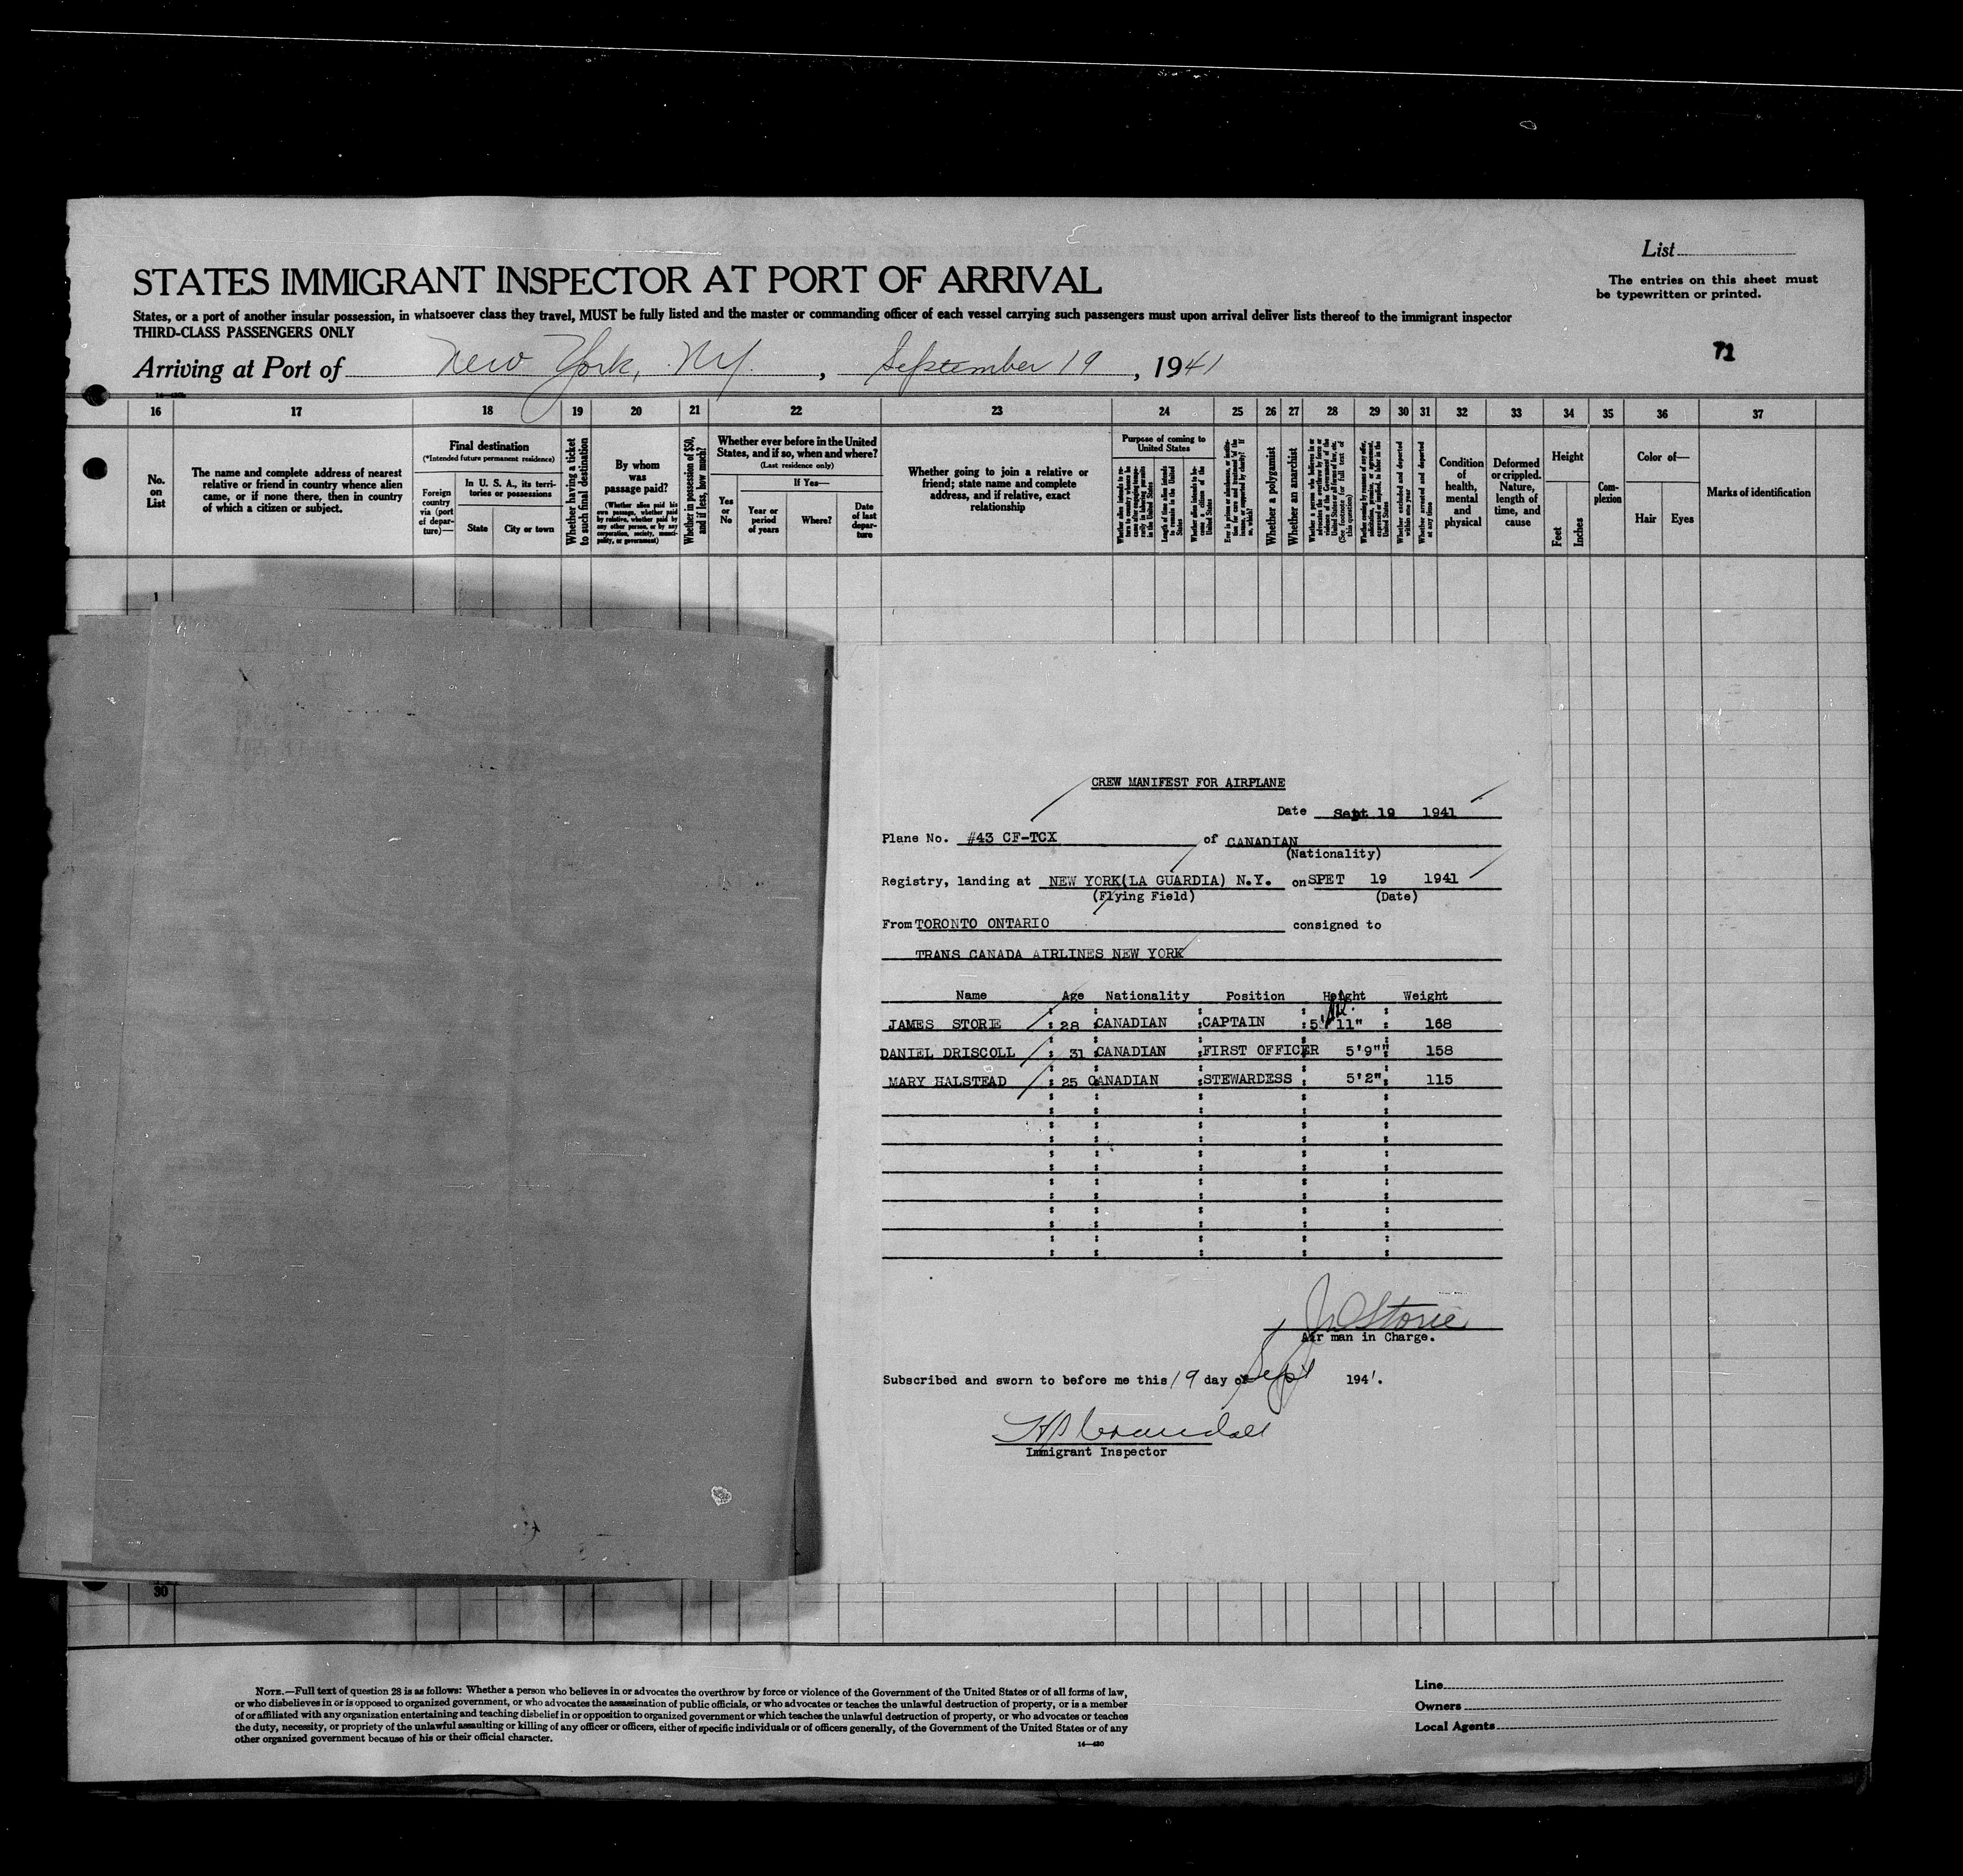 List
The entries on this sheet must
be typewritten or printed.
STATES IMMIGRANT INSPECTOR AT PORT OF ARRIVAL
States, or a port of another insular possession, in whatsoever class they travel, MUST be fully listed and the master or commanding officer of each vessel carrying such passengers must upon arrival deliver lists thereof to the immigrant inspector
THIRD-CLASS PASSENGERS ONLY
71
Arriving at Port of New York, NY. , September 19 , 1941
16 17 18 19 20 21 22 23 24 25 26 27 28 29 30 31 32 33 34 35 36 37
No.
on
List
The name and complete address of nearest
relative or friend in country whence alien
came, or if none there, then in country
of which a citizen or subject.
Final destination
(*Intended future permanent residence)
Foreign
country
via (port
of depar-
ture)—
In U. S. A., its terri-
tories or possessions
State
City or town
Whether having a ticket
to such final destination
By whom
was
passage paid?
(Whether alien paid his
own passage, whether paid
by relative, whether paid by
any other person, or by any
corporation, society, munici-
pality, or government)
Whether in possession of $50,
and if less, how much?
Whether ever before in the United
States, and if so, when and where?
(Last residence only)
If Yes—
Yes
or
No
Year or
period
of years
Where?
Date
of last
depar-
ture
Whether going to join a relative or
friend; state name and complete
address, and if relative, exact
relationship
Purpose of coming to
United States
Length of time alien intends
to remain in the United
States
Whether alien intends to be-
come a citizen of the
United States
Whether a polygamist
Whether an anarchist
Whether excluded and deported
within one year
Whether arrested and deported
at any time
Condition
of
health,
mental
and
physical
Deformed
or crippled.
Nature,
length of
time, and
cause
Height
Feet
Inches
Com-
plexion
Color of—
Hair
Eyes
Marks of identification
1
CREW MANIFEST FOR AIRPLANE
Date Sept 19 1941
Plane No. #43 CF-TCX of CANADIAN
(Nationality)
Registry, landing at NEW YORK(LA GUARDIA) N.Y. on SPET 19 1941
(Flying Field) (Date)
From TORONTO ONTARIO consigned to
TRANS CANADA AIRLINES NEW YORK
Name Age Nationality Position Height Weight
JAMES STORIE : 28 :CANADIAN :CAPTAIN :5' 11" : 168
DANIEL DRISCOLL : 31 :CANADIAN :FIRST OFFICER 5'9"": 158
MARY HALSTEAD : 25 CANADIAN :STEWARDESS : 5'2": 115
Storie
Air man in Charge.
Subscribed and sworn to before me this 19 day of Sept 1941.
Crandall
Immigrant Inspector
30
NOTE.—Full text of question 28 is as follows: Whether a person who believes in or advocates the overthrow by force or violence of the Government of the United States or of all forms of law,
or who disbelieves in or is opposed to organized government, or who advocates the assassination of public officials, or who advocates or teaches the unlawful destruction of property, or is a member
of or affiliated with any organization entertaining and teaching disbelief in or opposition to organized government or which teaches the unlawful destruction of property, or who advocates or teaches
the duty, necessity, or propriety of the unlawful assaulting or killing of any officer or officers, either of specific individuals or of officers generally, of the Government of the United States or of any
other organized government because of his or their official character.
14—430
Line
Owners
Local Agents